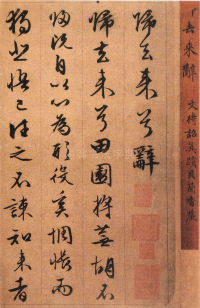 去來辭 文待詔真蹟
歸去来兮辭
歸去来兮田園将蕪胡不
歸既自以心為形役奚惆悵而
獨悲悟已往之不諫知来者